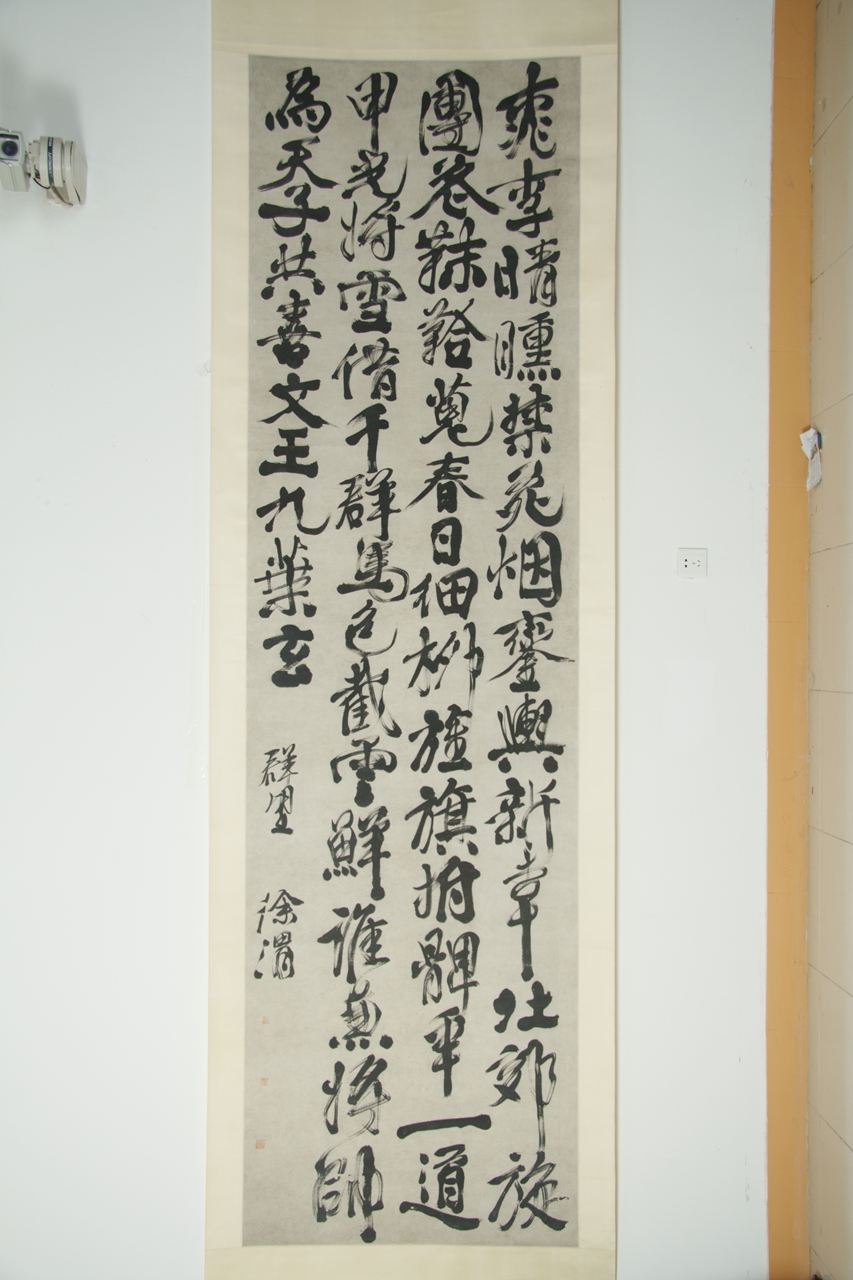 桃李晴曛禁苑烟鑾輿新幸北郊旋
團花韎鞈蒐春日細柳旌旗拊髀年一道
甲光將雪借千群馬色截雲鮮誰兼將帥
為天子共喜文王九葉玄 徐渭